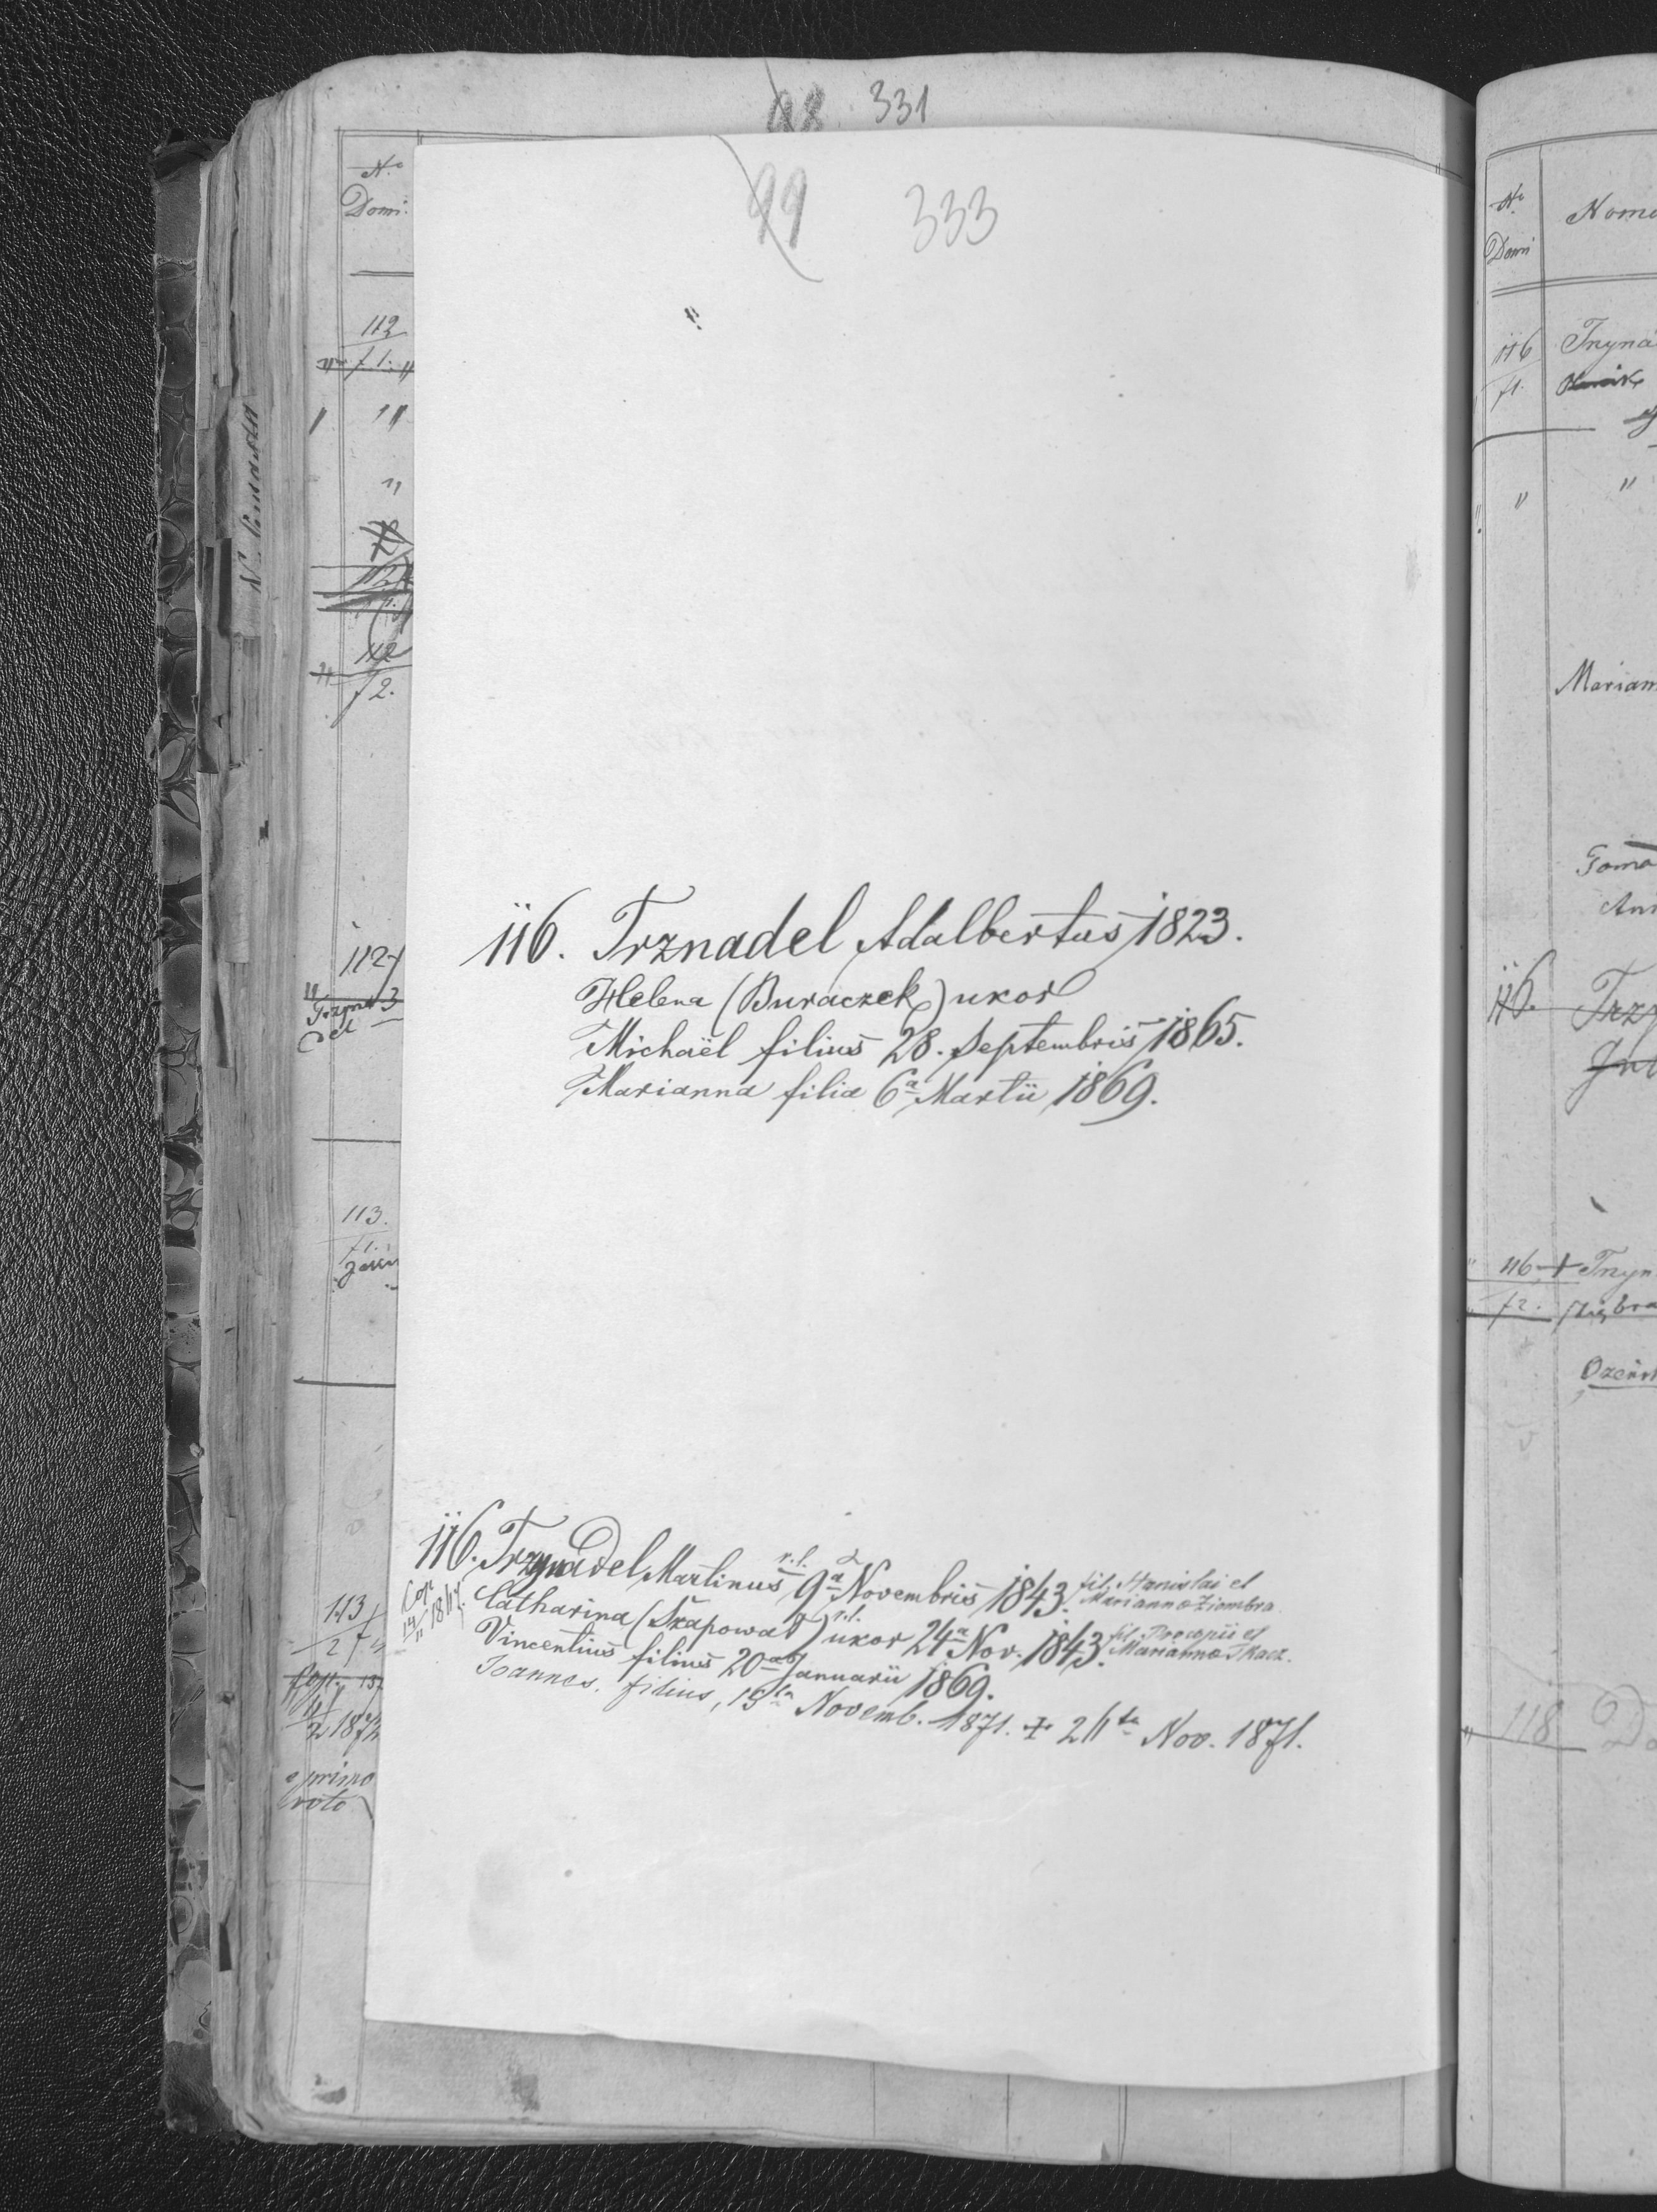 98 331
99 333
No
Domi.
112
f 1.
"
"
112
f 2.
112
3
113.
f1.
113
2
2 1874
primo
voto
116. Trznadel Adalbertus 1823.
Helena (Buraczek) uxor
Michaël filius 28. Septembris 1865.
Marianna filia 6a Martii 1869.
116. Trznadel Martinus r.l. 9a Novembris 1843. fil. Stanislai et
Marianna Ziombra
Cop 14/11 1867.
Catharina (Skapowat) r.l. uxor 24a Nov. 1843. fil. Procopii et
Marianna Tkacz.
Vincentius filius 20a Januarii 1869.
Joannes. filius, 15ta Novemb. 1871. + 24ta Nov. 1871.
No
Domi
Nome
116
f1.
"
"
Mariann
116.
116 +
f2.
118